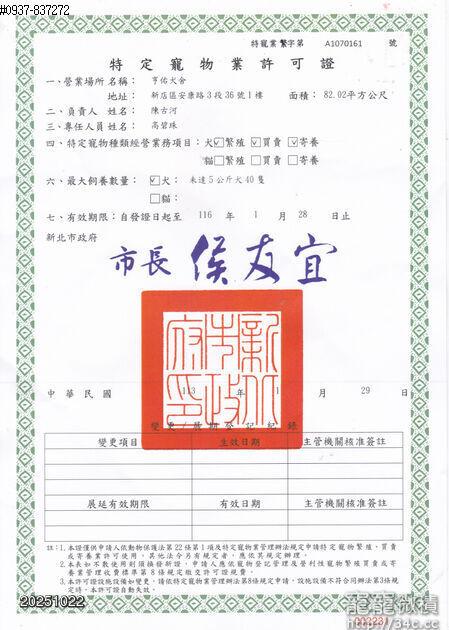 #0937-837272
特寵業繁字第 A1070161 號
特定寵物業許可證
一、營業場所名稱： 亨佑犬舍
地址： 新店區安康路3段36號1樓 面積： 82.02平方公尺
二、負責人姓名： 陳古河
三、專任人員姓名： 高碧珠
四、特定寵物種類經營業務項目： 犬☑繁殖 ☑買賣 ☑寄養
貓□繁殖 □買賣 □寄養
六、最大飼養數量： ☑犬： 未達5公斤犬40隻
□貓：
七、有效期限：自發證日起至 116 年 1 月 28 日止
新北市政府
市長 侯友宜
新北市政府印
中華民國 113 年 1 月 29 日
變更/展期登記紀錄
變更項目 生效日期 主管機關核准簽註
展延有效期限 有效日期 主管機關核准簽註
註：1.本證僅供申請人依動物保護法第22條第1項及特定寵物業管理辦法規定申請特定寵物繁殖、買賣
或寄養業許可使用，其他法令另有規定者，應依其規定辦理。
2.本表如不敷使用則須換發新證，申請人應依寵物登記管理及營利性寵物繁殖買賣或寄
養業管理收費標準第8條規定繳交許可證規費。
3.本許可證設施設備如變更，請依特定寵物業管理辦法第8條規定申請，設施設備不符合同辦法第3條規
定時，本許可證自動失效。
20251022
002231
龍龍微積
http://34c.cc